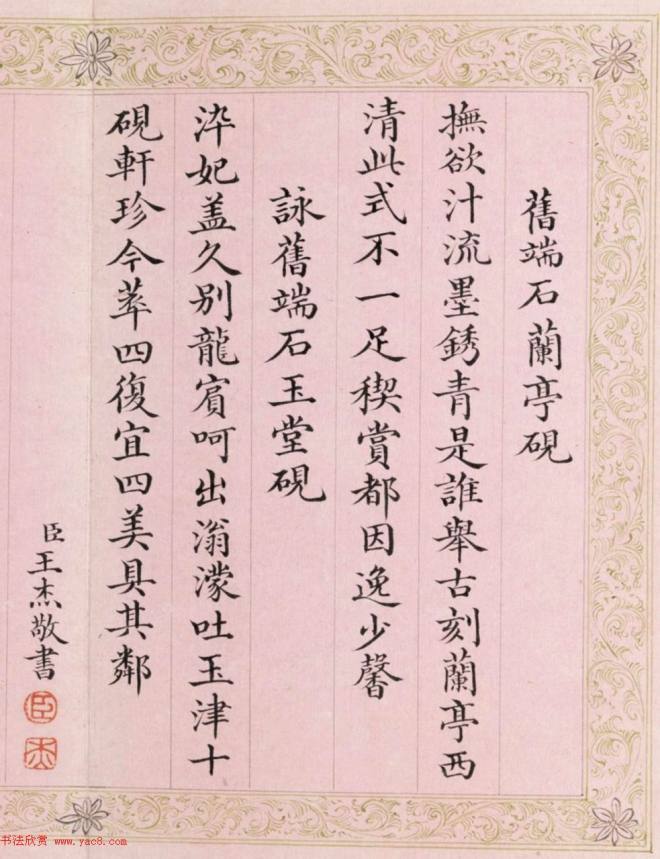 舊端石蘭亭硯
撫欲汁流墨銹青是誰舉古刻蘭亭西
清此式不一足稧賞都因逸少馨
詠舊端石玉堂硯
泮妃盖久别龍賓呵出滃濛吐玉津十
硯軒珍今萃四復宜四美具其鄰
臣王杰敬書
臣
杰
书法欣赏 www.yac8.com